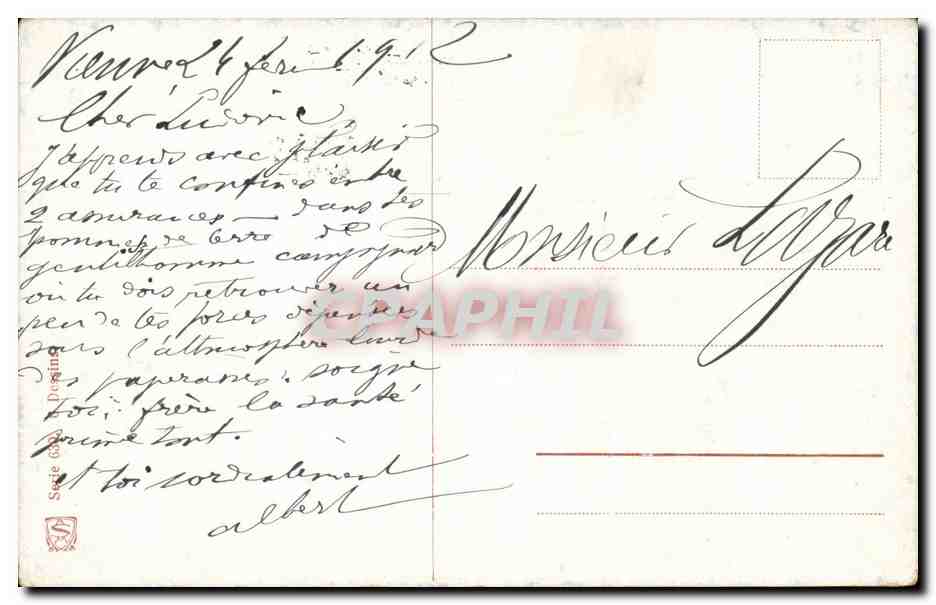 24 1912
Cher Ludovic,
J'apprends avec plaisir
que tu te confines entre
2 assurances — dans tes
pommes de terre de
gentilhomme campagnard
où tu dois retrouver un
peu de tes forces dépensées
dans l'atmosphère lourde
des paperasses. Soigne
toi, frère la santé
prime tout.
et toi cordialement
Albert
Monsieur Lazare
CPAPHIL
Serie 639 Dessins